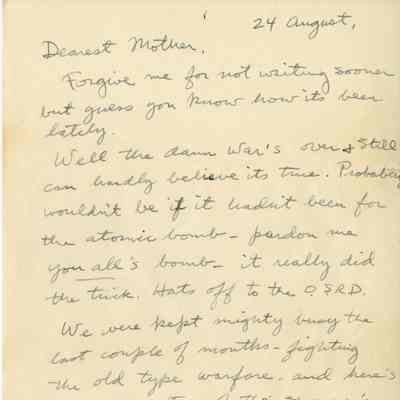 24 August,
Dearest Mother,
Forgive me for not writing sooner
but guess you know how its been
lately.
Well the damn War's over & still
can hardly believe its true. Probably
wouldn't be if it hadn't been for
the atomic bomb - pardon me
you all's bomb - it really did
the trick. Hats off to the O.S.R.D.
We were kept mighty busy the
last couple of months - fighting
the old type warfare. and here's